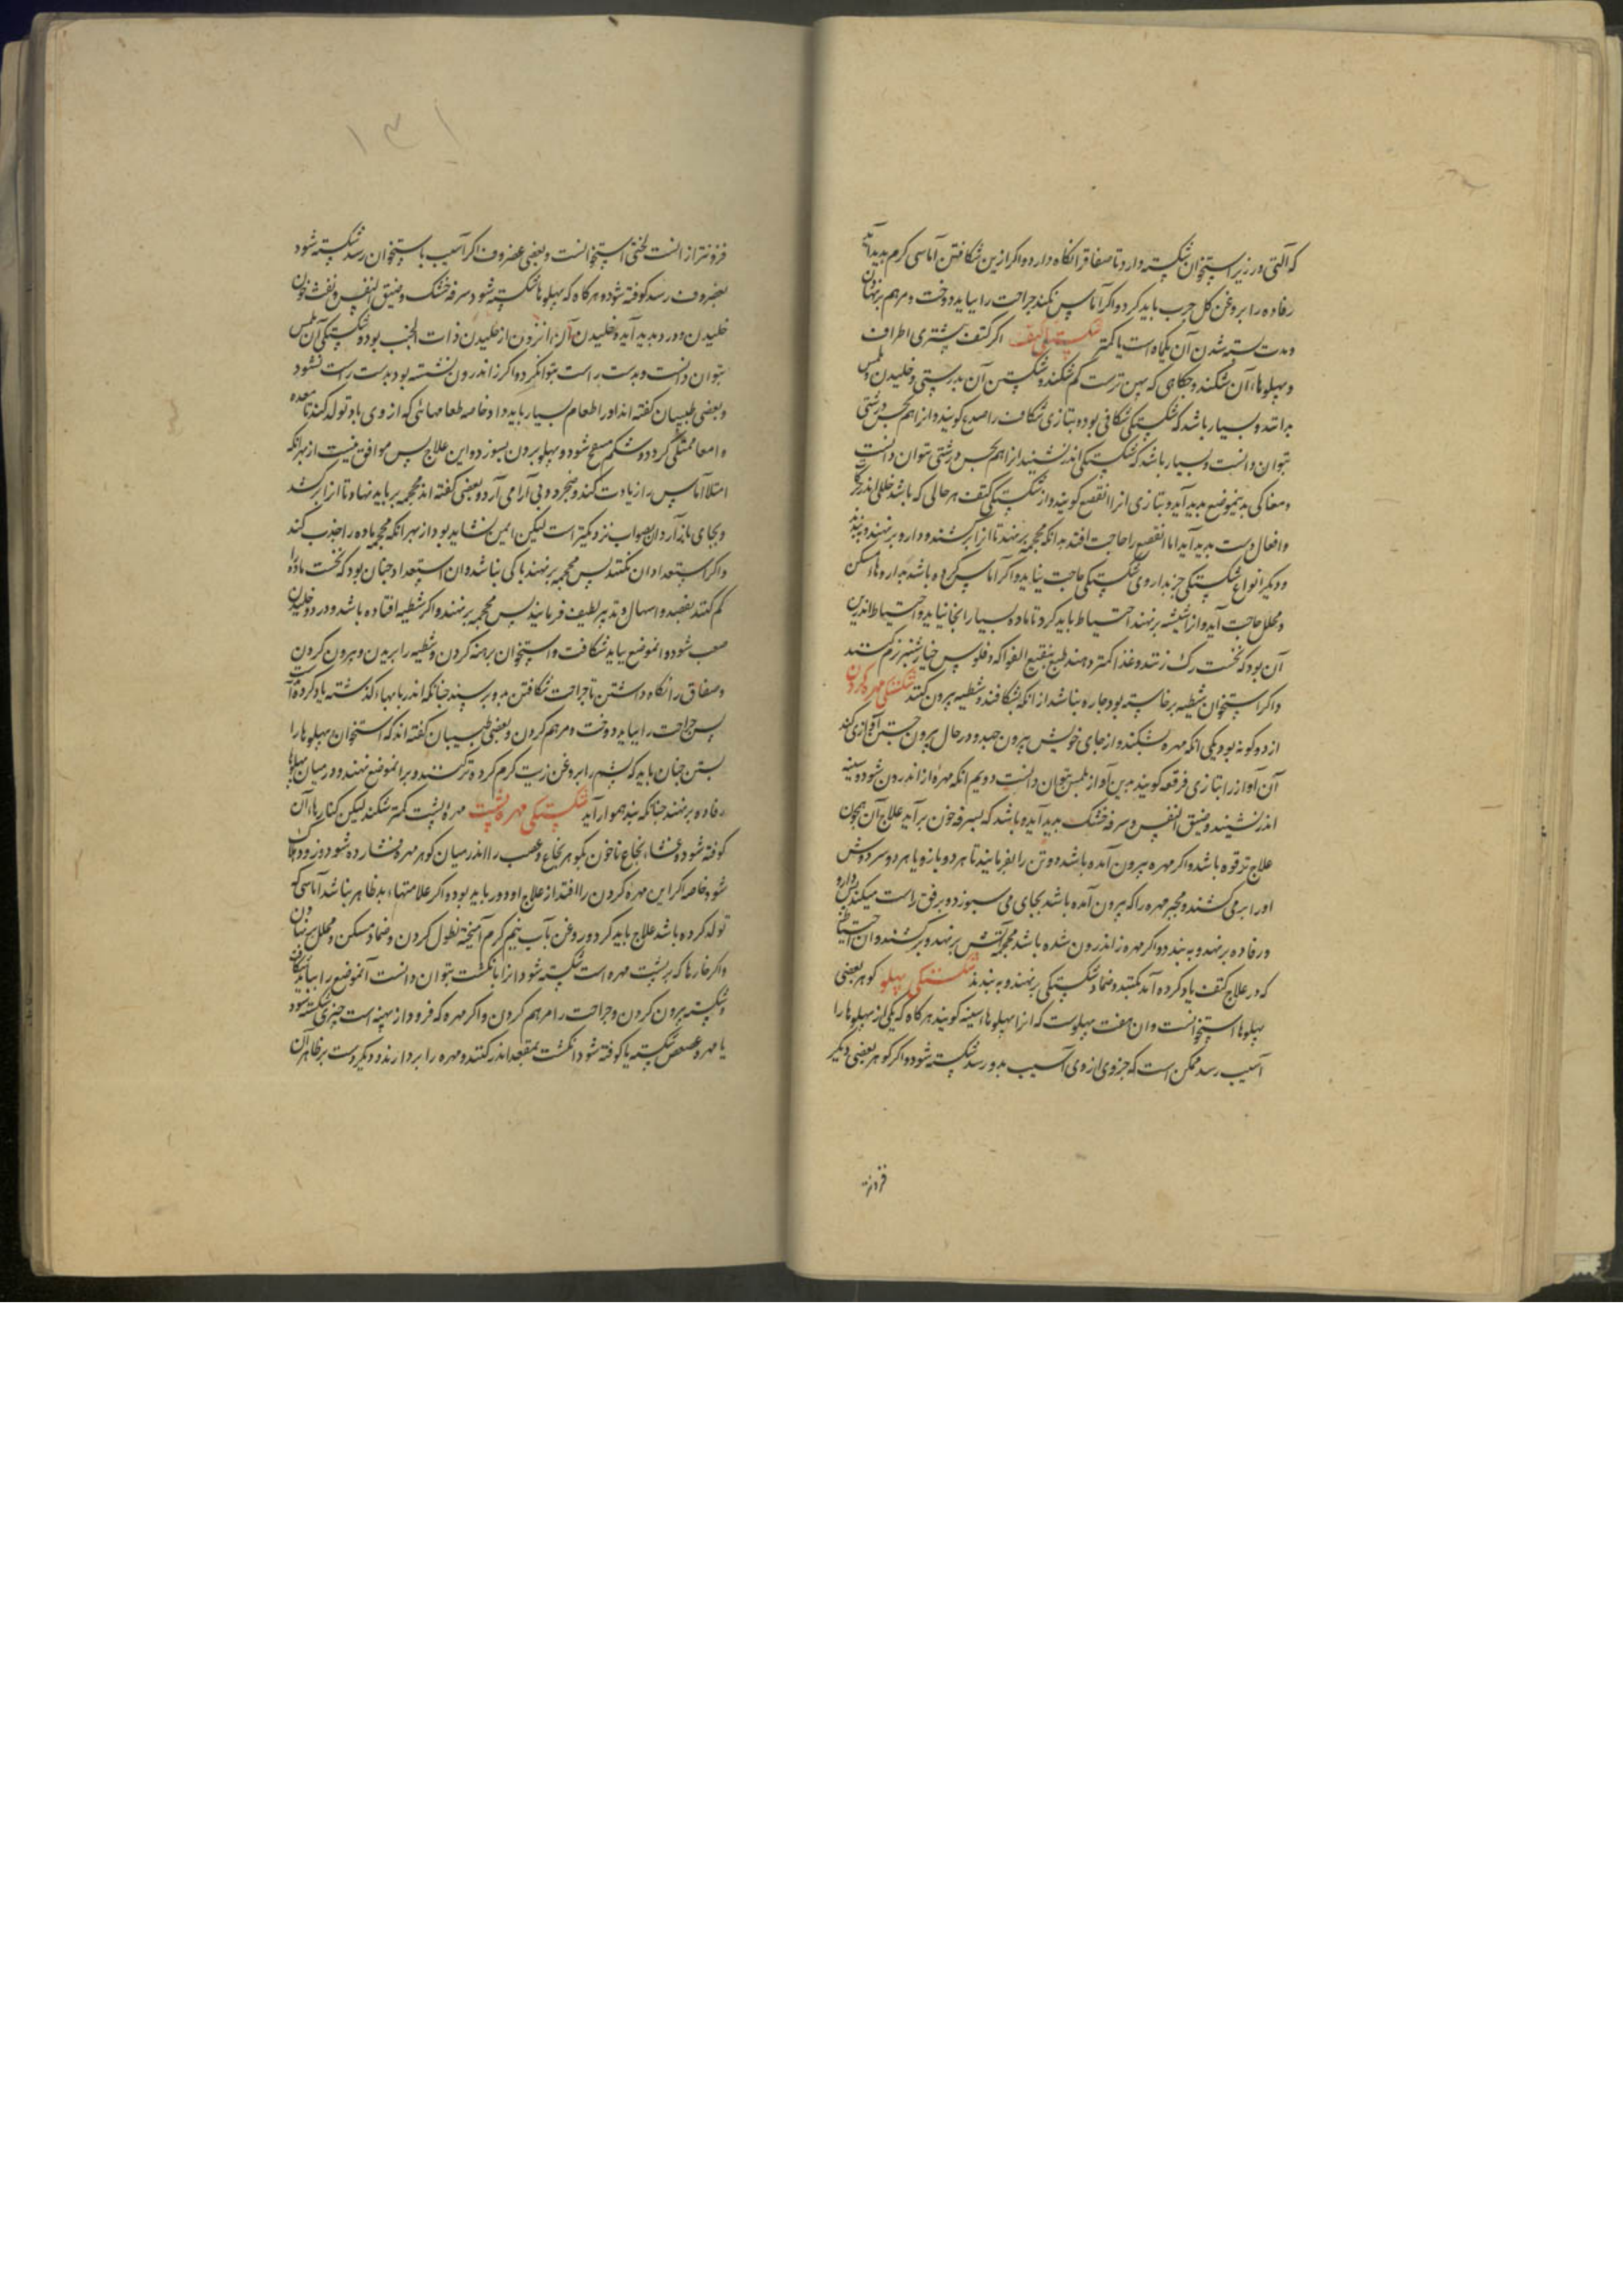 که آلتی در زیر استخوان شکسته دارد تا صفاق را نگاه دارد و اگر ازین شکافتن آماسی گرم پدید آید
رفاده را بروغن گل چرب باید کرد و اگر آماس نکند جراحت را بباید دوخت و مرهم برنهادن
و مدت بسته شدن آن یکماه است یا کمتر شکستگی کتف اگر کتف بیشتری اطراف
و پهلوهاء آن شکند و جایگاهی که پهن ترست کم شکند و شکستن آن بدرستی و خلیدن و لمس
بدانند و بسیار باشد که شکستگی شکافی بود و بتازی شکاف را صدع گویند و انرا هم بحس درشتی
بتوان دانست و بسیار باشد که شکستگی اندر نشیند انرا هم بحس درشتی توان دانست
و مغاکی بدینموضع پدید آید و بتازی انرا انقصع گویند و از شکستگی کتف هر حالی که باشد خللی اندر کار
و افعال دست پدید آید اما انقصع را حاجت افتد بدانکه محجمه برنهند تا انرا برکشند و دارو برنهند و ببندند
و دیگر انواع شکستگی جز بداروی شکستگی حاجت نیاید و اگر آماس کرده باشد بداروها مسکن
و محلل حاجت آید و انرا شیشه برنهند احتیاط باید کرد تا ماده بسیار انجا نیاید و احتیاط اندرین
آن بود که نخست رگ زنند و غذا کمتر دهند طبع بنقیع الفواکه و فلوس خیارشنبر نرم کنند
و اگر استخوان شظیه برخاسته بود چاره نباشد از انکه بشکافند و شظیه بیرون کنند شکستگی مهره گردن
از دو گونه بود یکی انکه مهره بشکند و از جای خویش بیرون جهد و در حال بیرون جستن آوازی کند
آن آواز را بتازی فرقعه گویند بدین آواز بلمس بتوان دانست دویم انکه مهره از اندرون شود و سینه
اندر نشیند و ضیق النفس و سرفه خشک پدید آید و باشد که بسرفه خون برآید علاج آن همچون
علاج ترقوه باشد و اگر مهره بیرون آمده باشد دو تن را بفرمایند تا هر دو بازو یا هر دو سر دوش
او را برمی کشند و مجبر مهره را که بیرون آمده باشد بجای می سپوزد و برفق راست میکند پس دارو
و رفاده برنهد و ببندد و اگر مهره از اندرون شده باشد محجمه آتشی برنهد و برکشند و ان احتیاط
که در علاج کتف یاد کرده آمد بکنند و ضماد شکستگی برنهند و ببندند شکستگی پهلو گوهر بعضی
پهلوها استخوانست و ان هفت پهلوست که انرا پهلوهاء سینه گویند هرگاه که یکی از پهلوها را
آسیب رسد ممکن است که جزوی از وی آسیب بدو رسد شکسته شود و اگر گوهر بعضی دیگر
فروتر
۱۳۱
فروتر از انست لختی استخوانست و بعضی غضروف اگر آسیب باستخوان رسد شکسته شود
بغضروف رسد کوفته شود و هرگاه که پهلوها شکسته شود سرفه خشک و ضیق النفس و نفث خون
خلیدن و درد پدید آید و خلیدن آن افزون از خلیدن ذات الجنب بود و شکستگی آن بلمس
بتوان دانست و بدست راست بتوان کرد و اگر از اندرون نشسته بود بدست راست نشود
و بعضی طبیبان گفته اند او را طعام بسیار باید داد خاصه طعامهائی که از وی باد تولد کند تا معده
و امعا ممتلی گردد و شکم منتفخ شود و پهلو بیرون سپوزد و این علاج پس موافق نیست از بهر انکه
امتلا آماس را زیادت کند و ضجرد و بی آرامی آرد و بعضی گفته اند محجمه برباید نهاد تا انرا برکشد
و بجای بازآرد و ان بصواب نزدیکتر است لیکن ایمن نشاید بود از بهر انکه محجمه ماده را جذب کند
و اگر استعداد ان بکنند پس محجمه برنهند باکی نباشد و ان استعداد چنان بود که نخست ماده را
کم کنند بفصد و اسهال و تدبیر لطیف فرمایند پس محجمه برنهند و اگر شظیه افتاده باشد و درد و خلیدن
صعب شود و انموضع بباید شکافت و استخوان برهنه کردن و شظیه را بریدن و بیرون کردن
و صفاق را نگاه داشتن تا جراحت شکافتن بدو برسد چنانکه اندر بابهاء گذشته یاد کرده آمدست
پس جراحت را بباید دوخت و مرهم کردن و بعضی طبیبان گفته اند که استخوان پهلوها را
بستن چنان باید که پشم را بروغن زیت گرم کرده تر کنند و برانموضع نهند و در میان پهلوها
رفاده برنهند چنانکه بند هموار آید شکستگی مهره پشت مهره پشت کمتر شکند لیکن کنارهاء آن
کوفته شود و غشاء نخاع تا خون بگوهر نخاع و عصب را اندر میان گوهر مهره فشارده شود و زود هلاک
شود خاصه اگر این مهره گردن را افتد از علاج او دور باید بود و اگر علامتهاء بد ظاهر نباشد آماسی که
تولد کرده باشد علاج باید کرد و روغن بآب نیم گرم آمیخته نطول کردن و ضماد مسکن و محلل برنهادن
و اگر خارها که بر پشت مهره است شکسته شود انرا بانگشت بتوان دانست آنموضع را بباید شکافت
و شکسته بیرون کردن و جراحت را مرهم کردن و اگر مهره که فرود از پهنه است چیزی شکسته شود
یا مهره عصعص شکسته یا کوفته شود انگشت بمقعد اندر کنند و مهره را بردارند و دیگر دست بر ظاهر آن